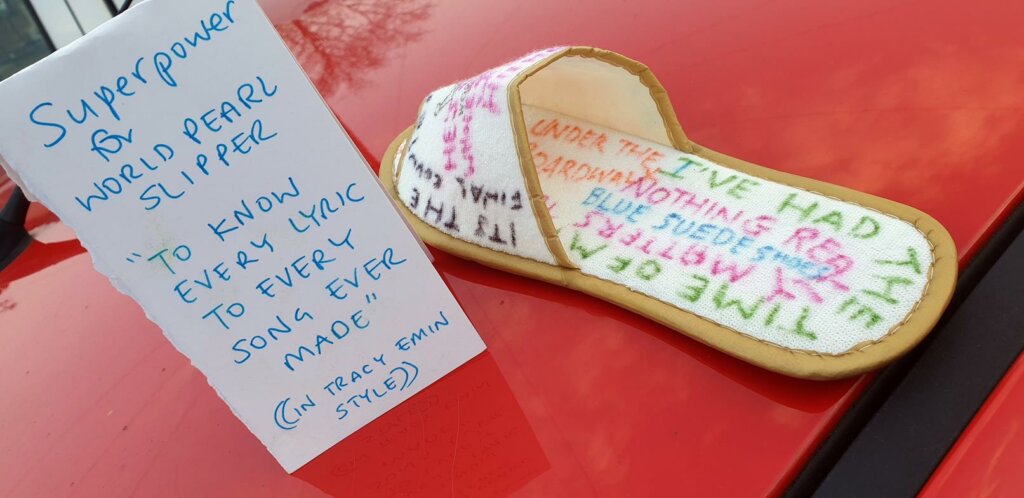 Superpower
for
WORLD PEARL
SLIPPER
"TO KNOW
EVERY LYRIC
TO EVERY
SONG EVER
MADE"
((IN TRACY EMIN
STYLE))
UNDER THE
BOARDWALK
I'VE HAD THE
TIME OF MY
NOTHING REALLY
MATTERS
BLUE SUEDE SHOES
IT'S THE
FINAL COUN